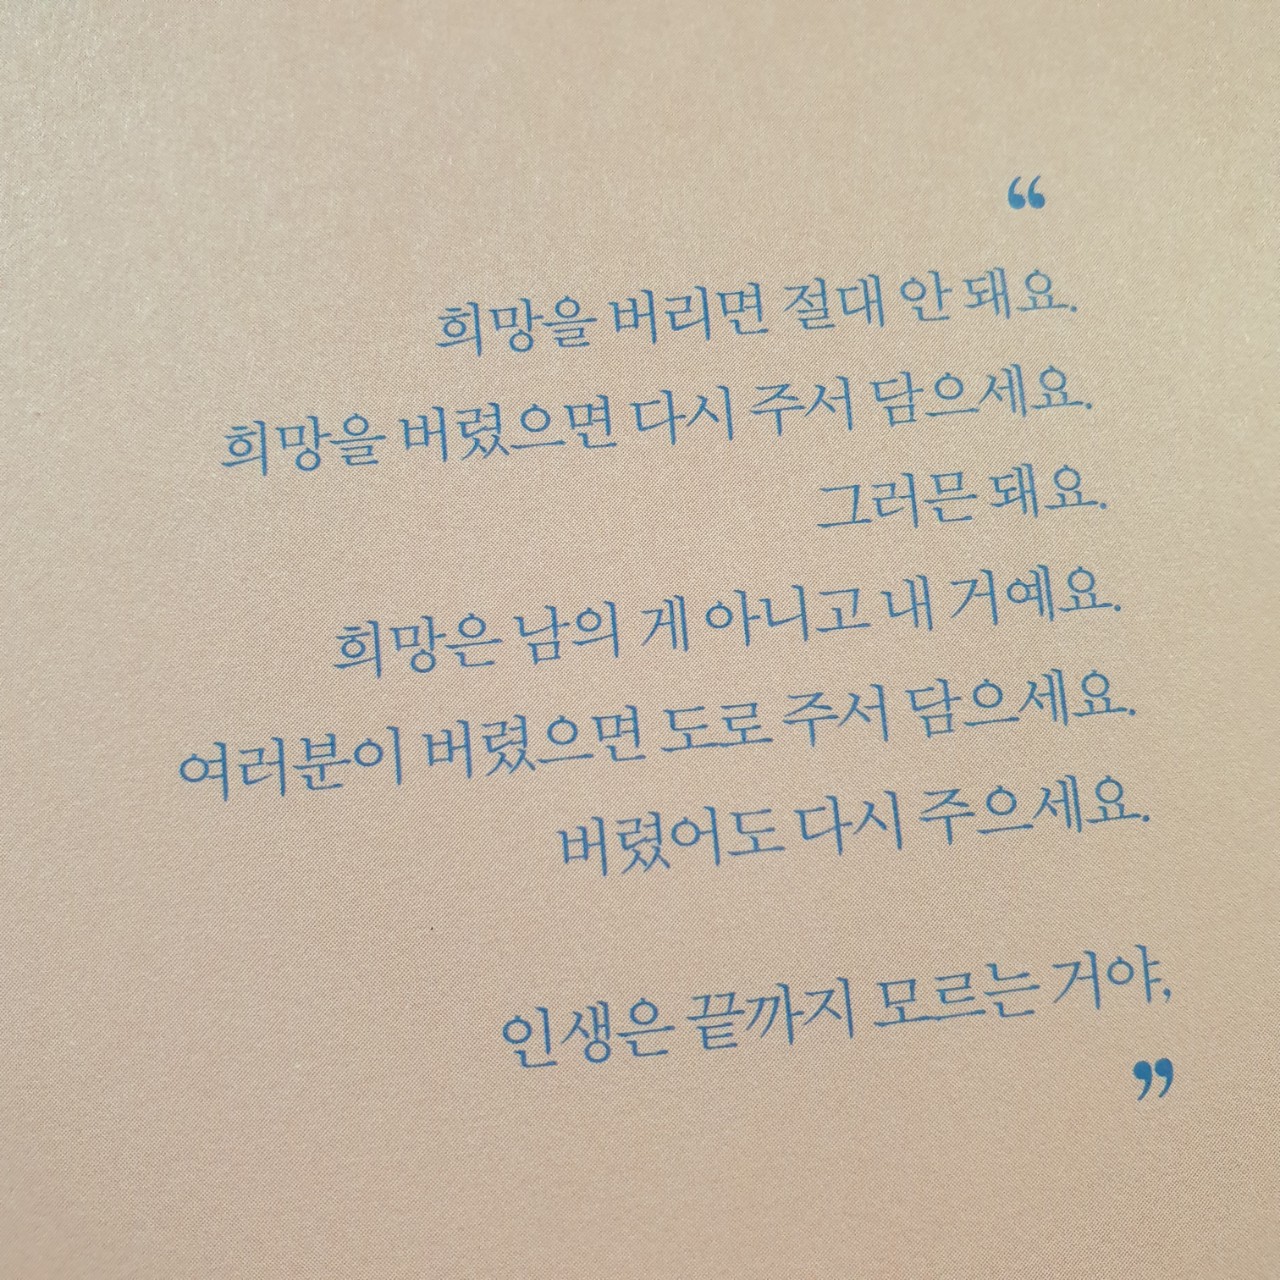 “
희망을 버리면 절대 안 돼요.
희망을 버렸으면 다시 주서 담으세요.
그러믄 돼요.
희망은 남의 게 아니고 내 거예요.
여러분이 버렸으면 도로 주서 담으세요.
버렸어도 다시 주으세요.
인생은 끝까지 모르는 거야,
”